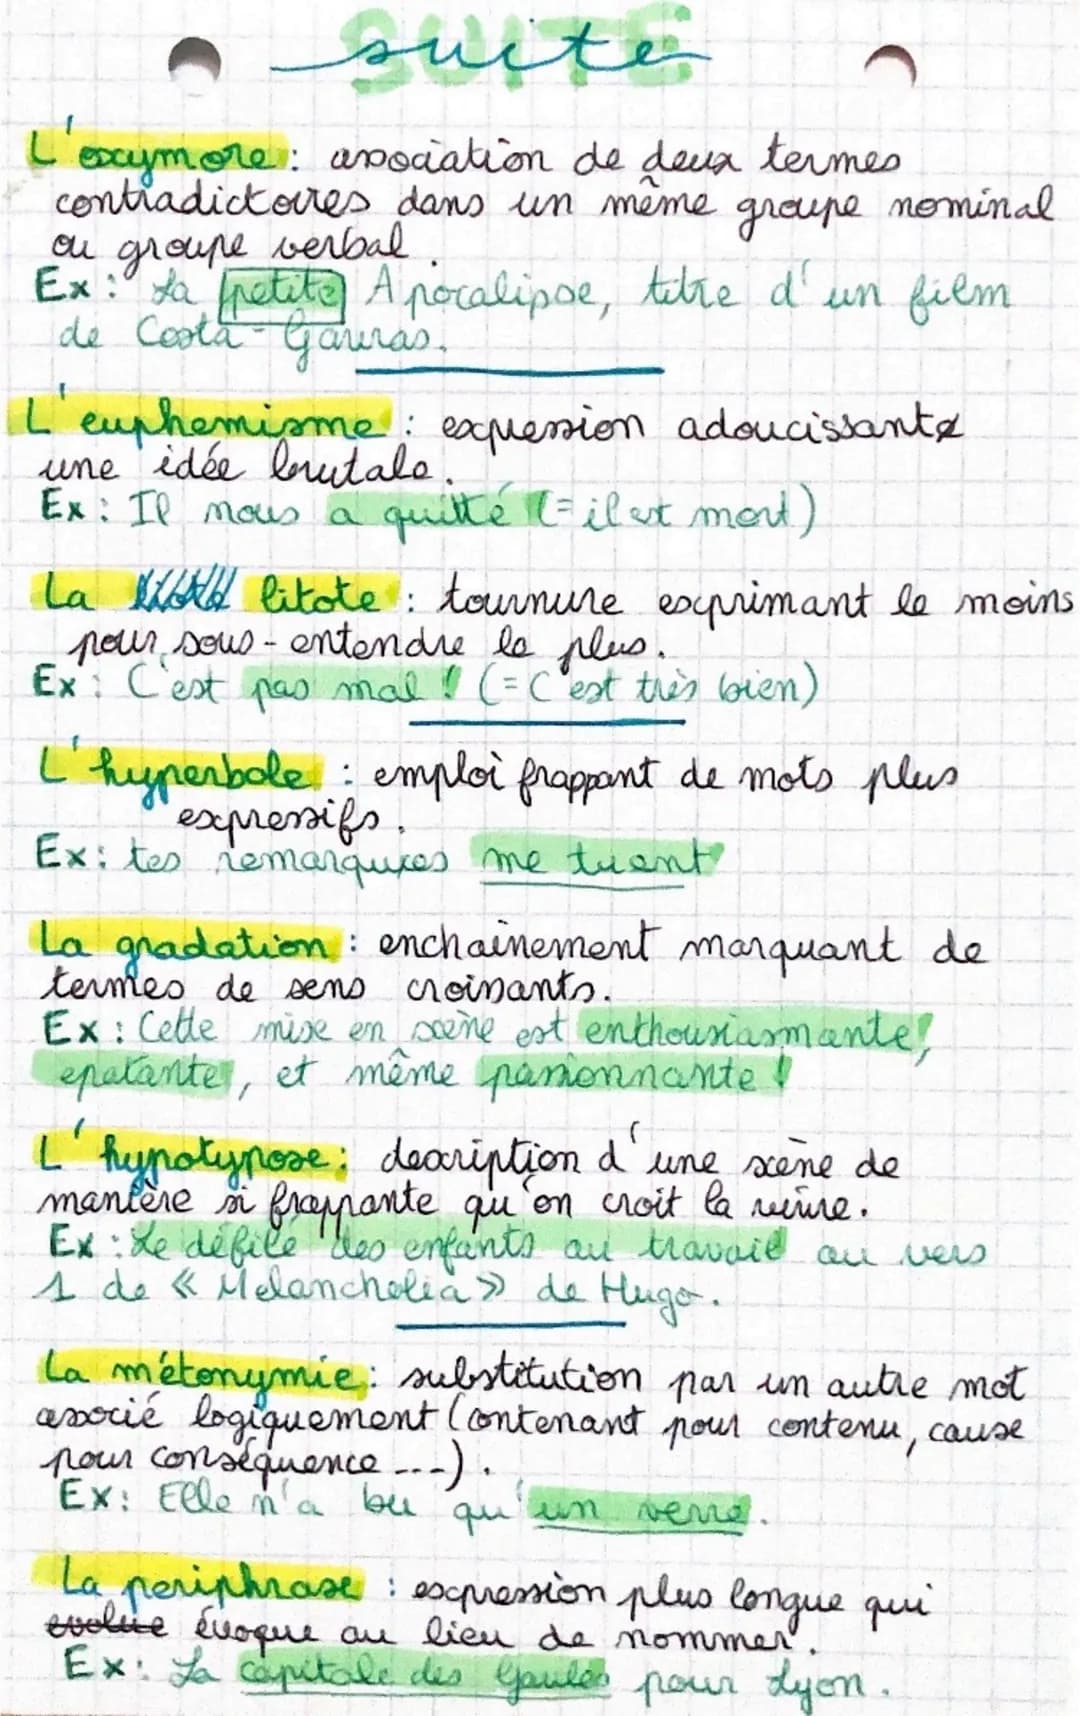 SUITE
suite
L'oxymore : association de deux termes
contradictoires dans un même groupe nominal
ou groupe verbal.
Ex : La petite Apocalipse, titre d'un film
de Costa-Gavras.
L'euphemisme : expression adoucissante
une idée brutale.
Ex : Il nous a quitté (= il est mort)
La litote : tournure exprimant le moins
pour sous-entendre le plus.
Ex : C'est pas mal ! (= C'est très bien)
L'hyperbole : emploi frappant de mots plus
expressifs.
Ex : tes remarques me tuent
La gradation : enchainement marquant de
termes de sens croissants.
Ex : Cette mise en scène est enthousiasmante,
epatante, et même passionnante !
L'hypotypose : description d'une scène de
manière si frappante qu'on croit la vivre.
Ex : Le défilé des enfants au travail au vers
1 de « Melancholia » de Hugo.
La métonymie : substitution par un autre mot
associé logiquement (contenant pour contenu, cause
pour conséquence ...).
Ex : Elle n'a bu qu'un verre.
La periphrase : expression plus longue qui
evolue évoque au lieu de nommer.
Ex : La capitale des Gaules pour Lyon.